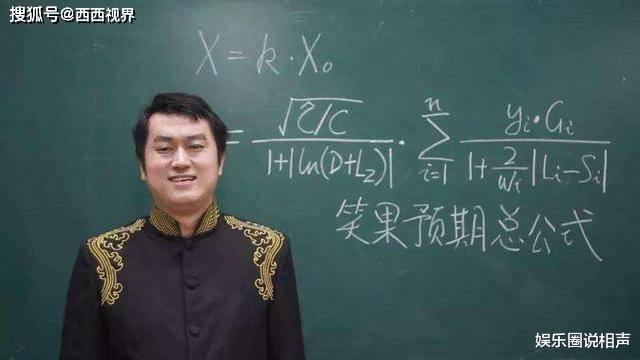 搜狐号@西西视界
X=k·X₀
=√(Z/C)/(1+|ln(D+L₂)|)·∑ⁿᵢ₌₁ (yᵢ·Gᵢ)/(1+2/wᵢ|Lᵢ-Sᵢ|)
笑果预期总公式
娱乐圈说相声